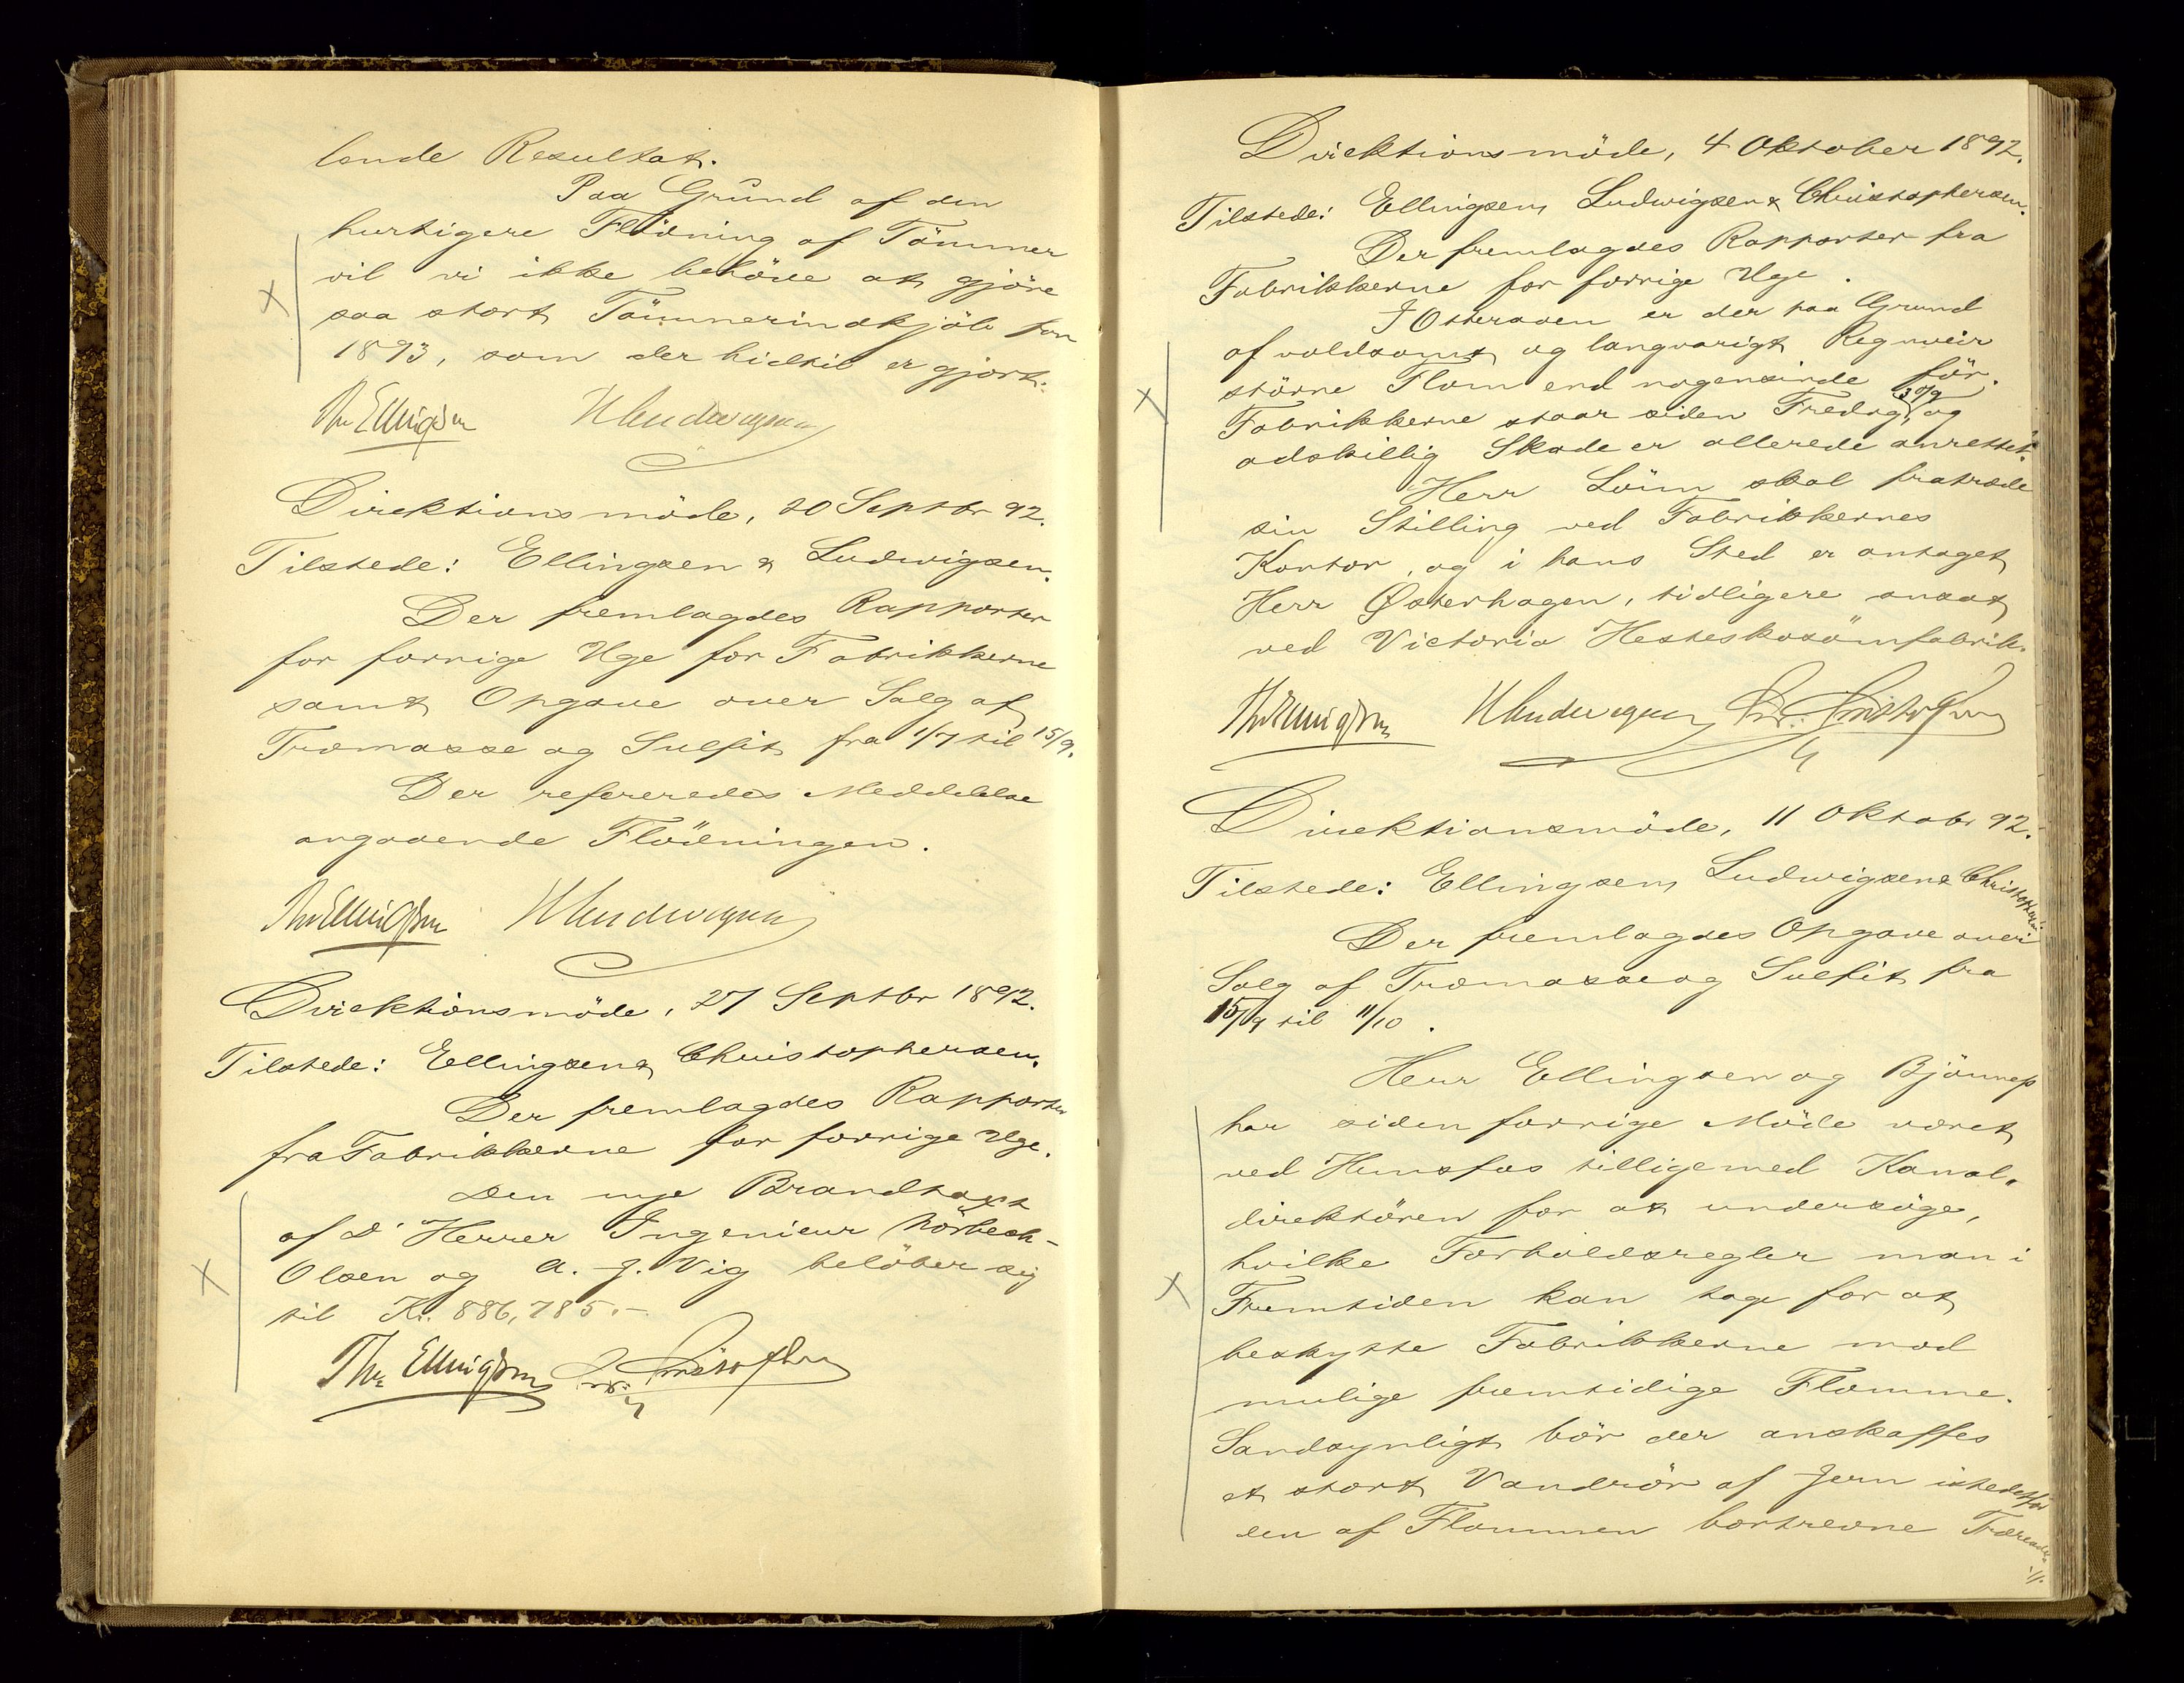 lende Resultat.
Paa Grund af den
hurtigere Flödning af Tömmer
vil vi ikke behöve at gjöre
saa stort Tömmerindkjöb for
1893, som der hidtil er gjort.
Th. Ellingsen HLudwigsen
Direktionsmöde, 20 Septbr 92.
Tilstede: Ellingsen & Ludwigsen.
Der fremlagdes Rapporter
for forrige Uge for Fabrikkerne
samt Opgave over Salg af
Træmasse og Sulfit fra 1/7 til 15/9.
Der refereredes Meddelelse
angaaende Flödningen.
Th. Ellingsen HLudwigsen
Direktionsmöde, 27 Septbr 1892.
Tilstede: Ellingsen & Christophersen.
Der fremlagdes Rapporter
fra Fabrikkerne for forrige Uge.
Den nye Brandtaxt
af D' Herrer Ingeniour Nörbech-
Olsen og A. J. Vig belöber sig
til Kr. 886,785.-
Th. Ellingsen Chr. Christophersen
Direktionsmöde, 4 Oktober 1892.
Tilstede: Ellingsen, Ludwigsen & Christophersen.
Der fremlagdes Rapporter fra
Fabrikkerne for forrige Uge.
I Otteraaen er der paa Grund
af voldsomt og langvarigt Regnveir
större Flom end nogensinde för.
Fabrikkerne staar siden Fredag 30/9 og
adskillig Skade er allerede anrettet.
Herr Löim skal fratræde
sin Stilling ved Fabrikkernes
Kontor, og i hans Sted er antaget
Herr Østerhagen, tidligere ansat
ved Victoria Hesteskosömfabrik.
Th. Ellingsen HLudwigsen Chr. Christophersen
Direktionsmöde, 11 Oktobr 92.
Tilstede: Ellingsen, Ludwigsen & Christophersen
Der fremlagdes Opgave over
Salg af Træmasse og Sulfit fra
15/9 til 11/10.
Herr Ellingsen og Bjönnes
har siden forrige Möde været
ved Hunsfos tilligemed Kanal-
direktören for at undersöge,
hvilke Forholdsregler man i
Fremtiden kan tage for at
beskytte Fabrikkerne mod
mulige fremtidige Flomme.
Sandsynligt bör der anskaffes
et stort Vandrör af Jern istedetfor
den af Flommen bortrevne Trærende